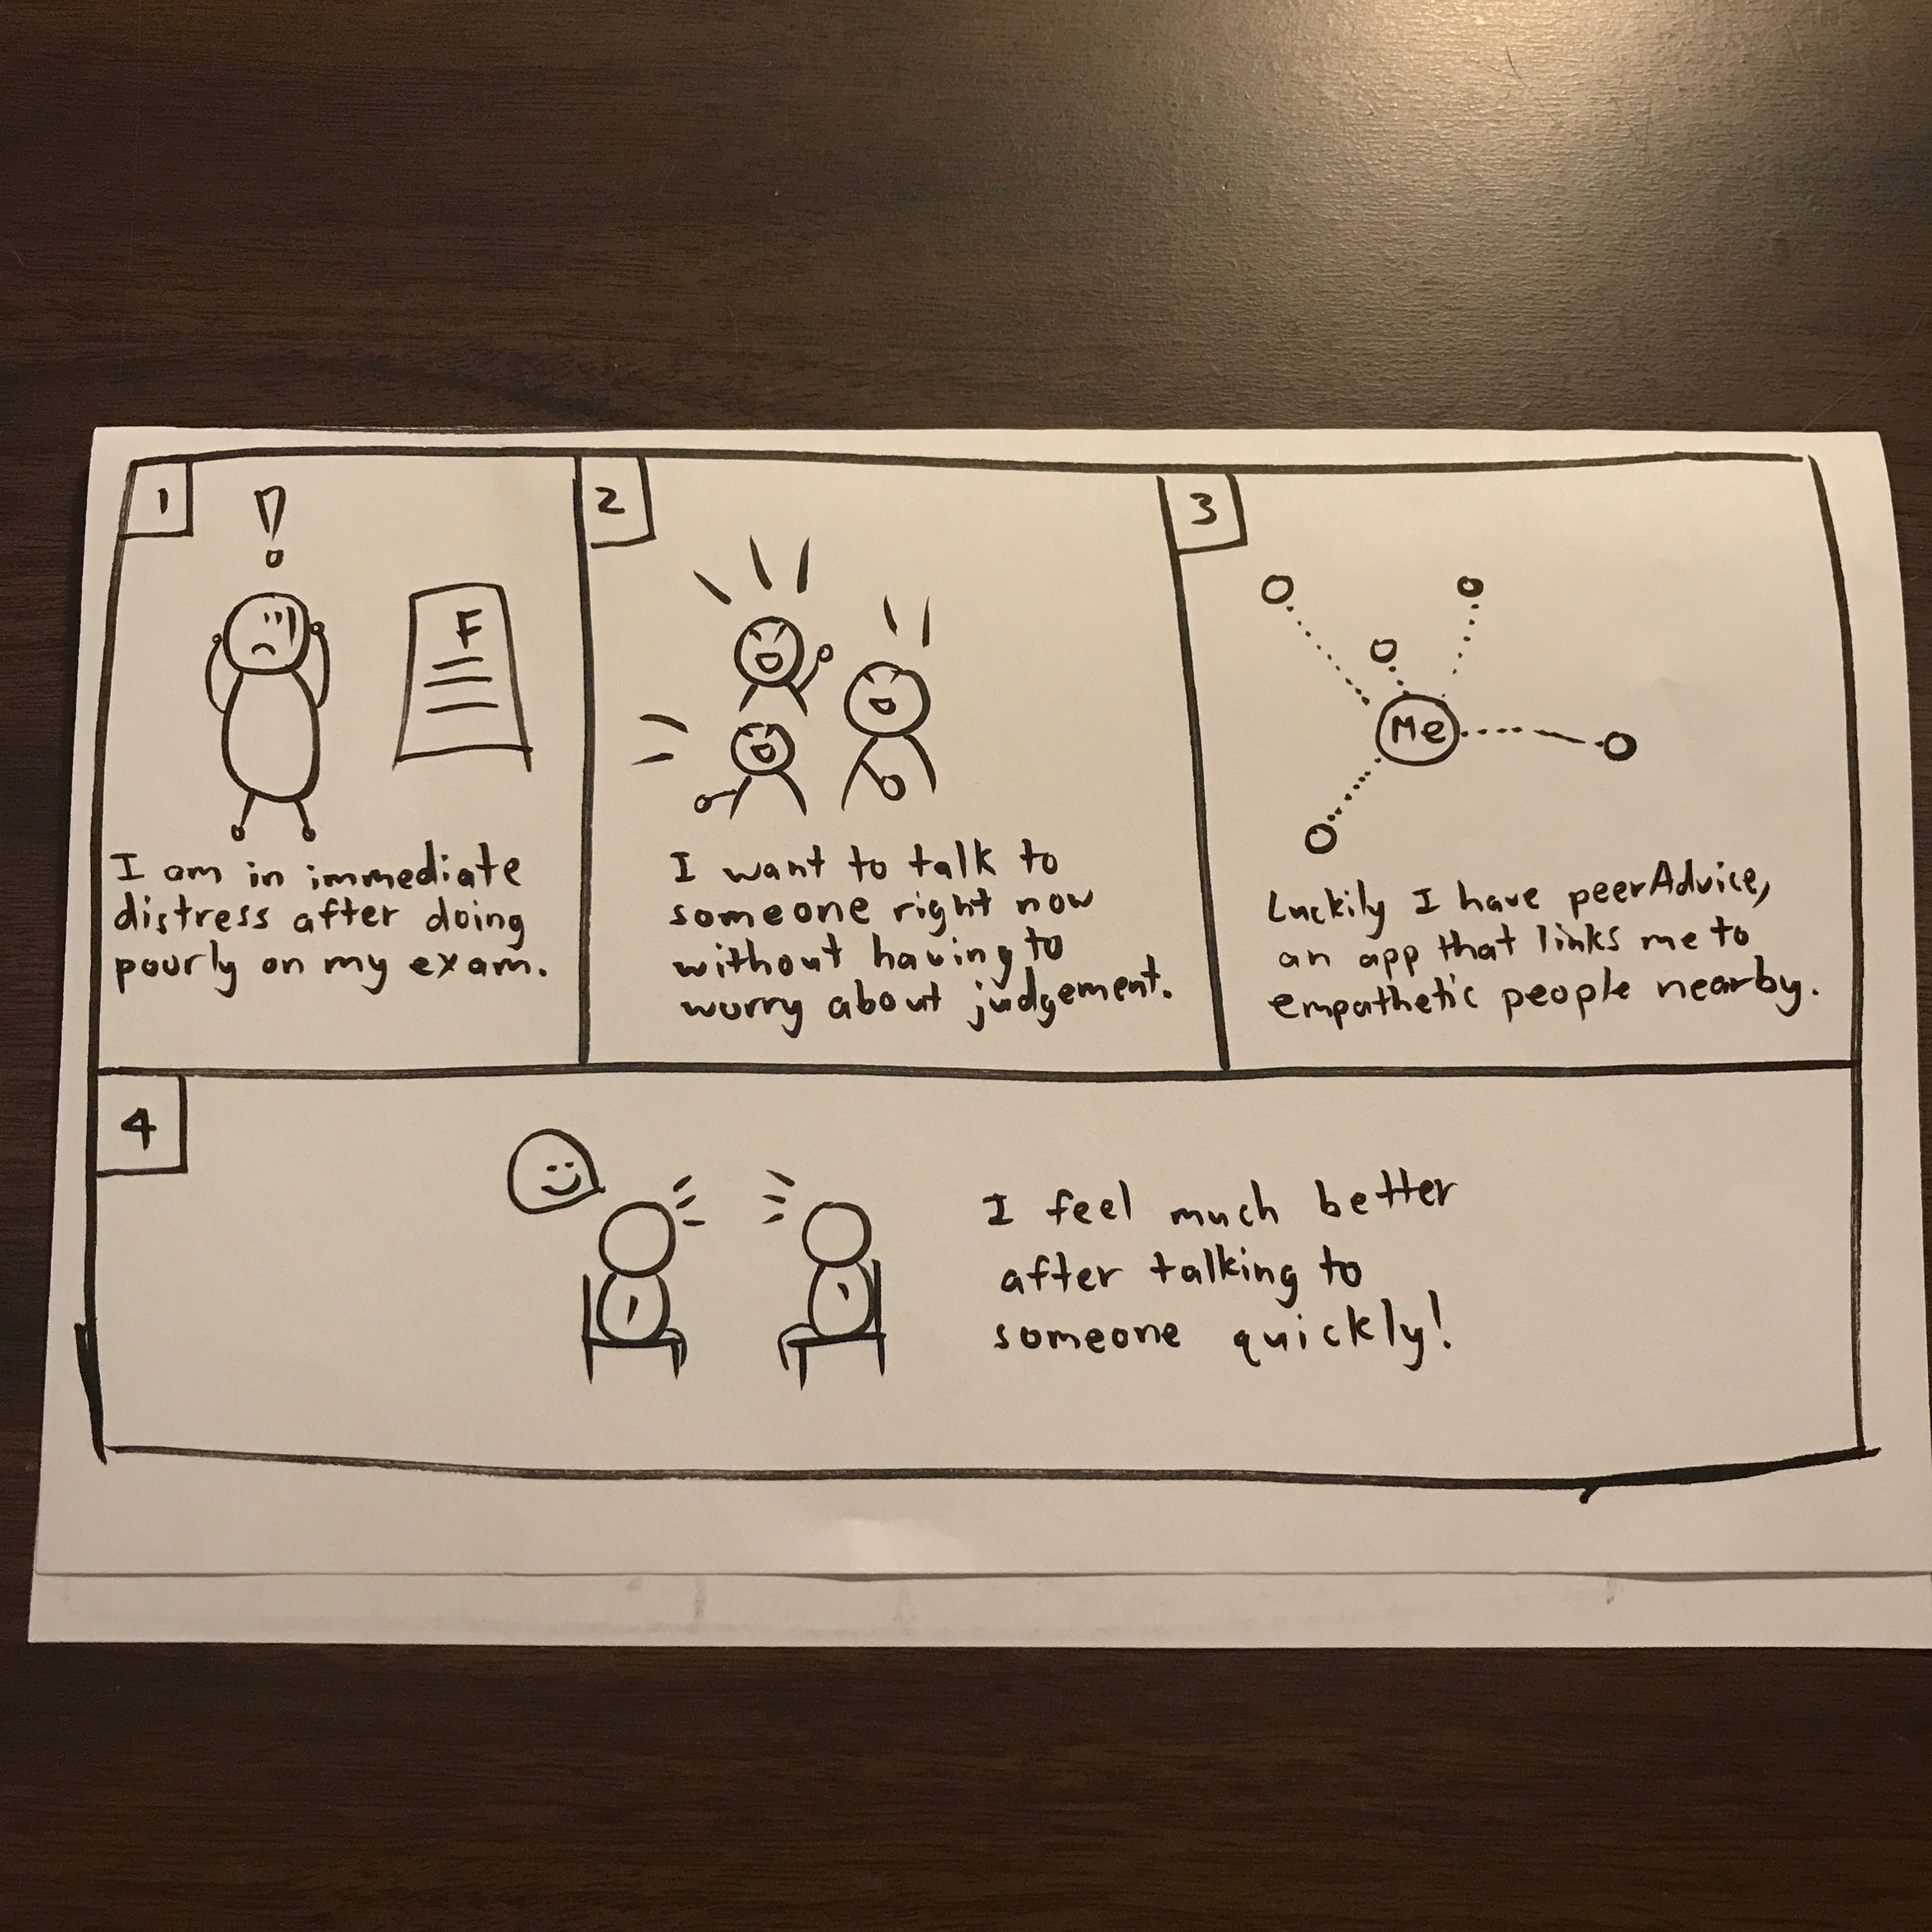 1
F
I am in immediate
distress after doing
pourly on my exam.
2
I want to talk to
someone right now
without having to
worry about judgement.
3
Me
Luckily I have peerAdvice,
an app that links me to
empathetic people nearby.
4
I feel much better
after talking to
someone quickly!